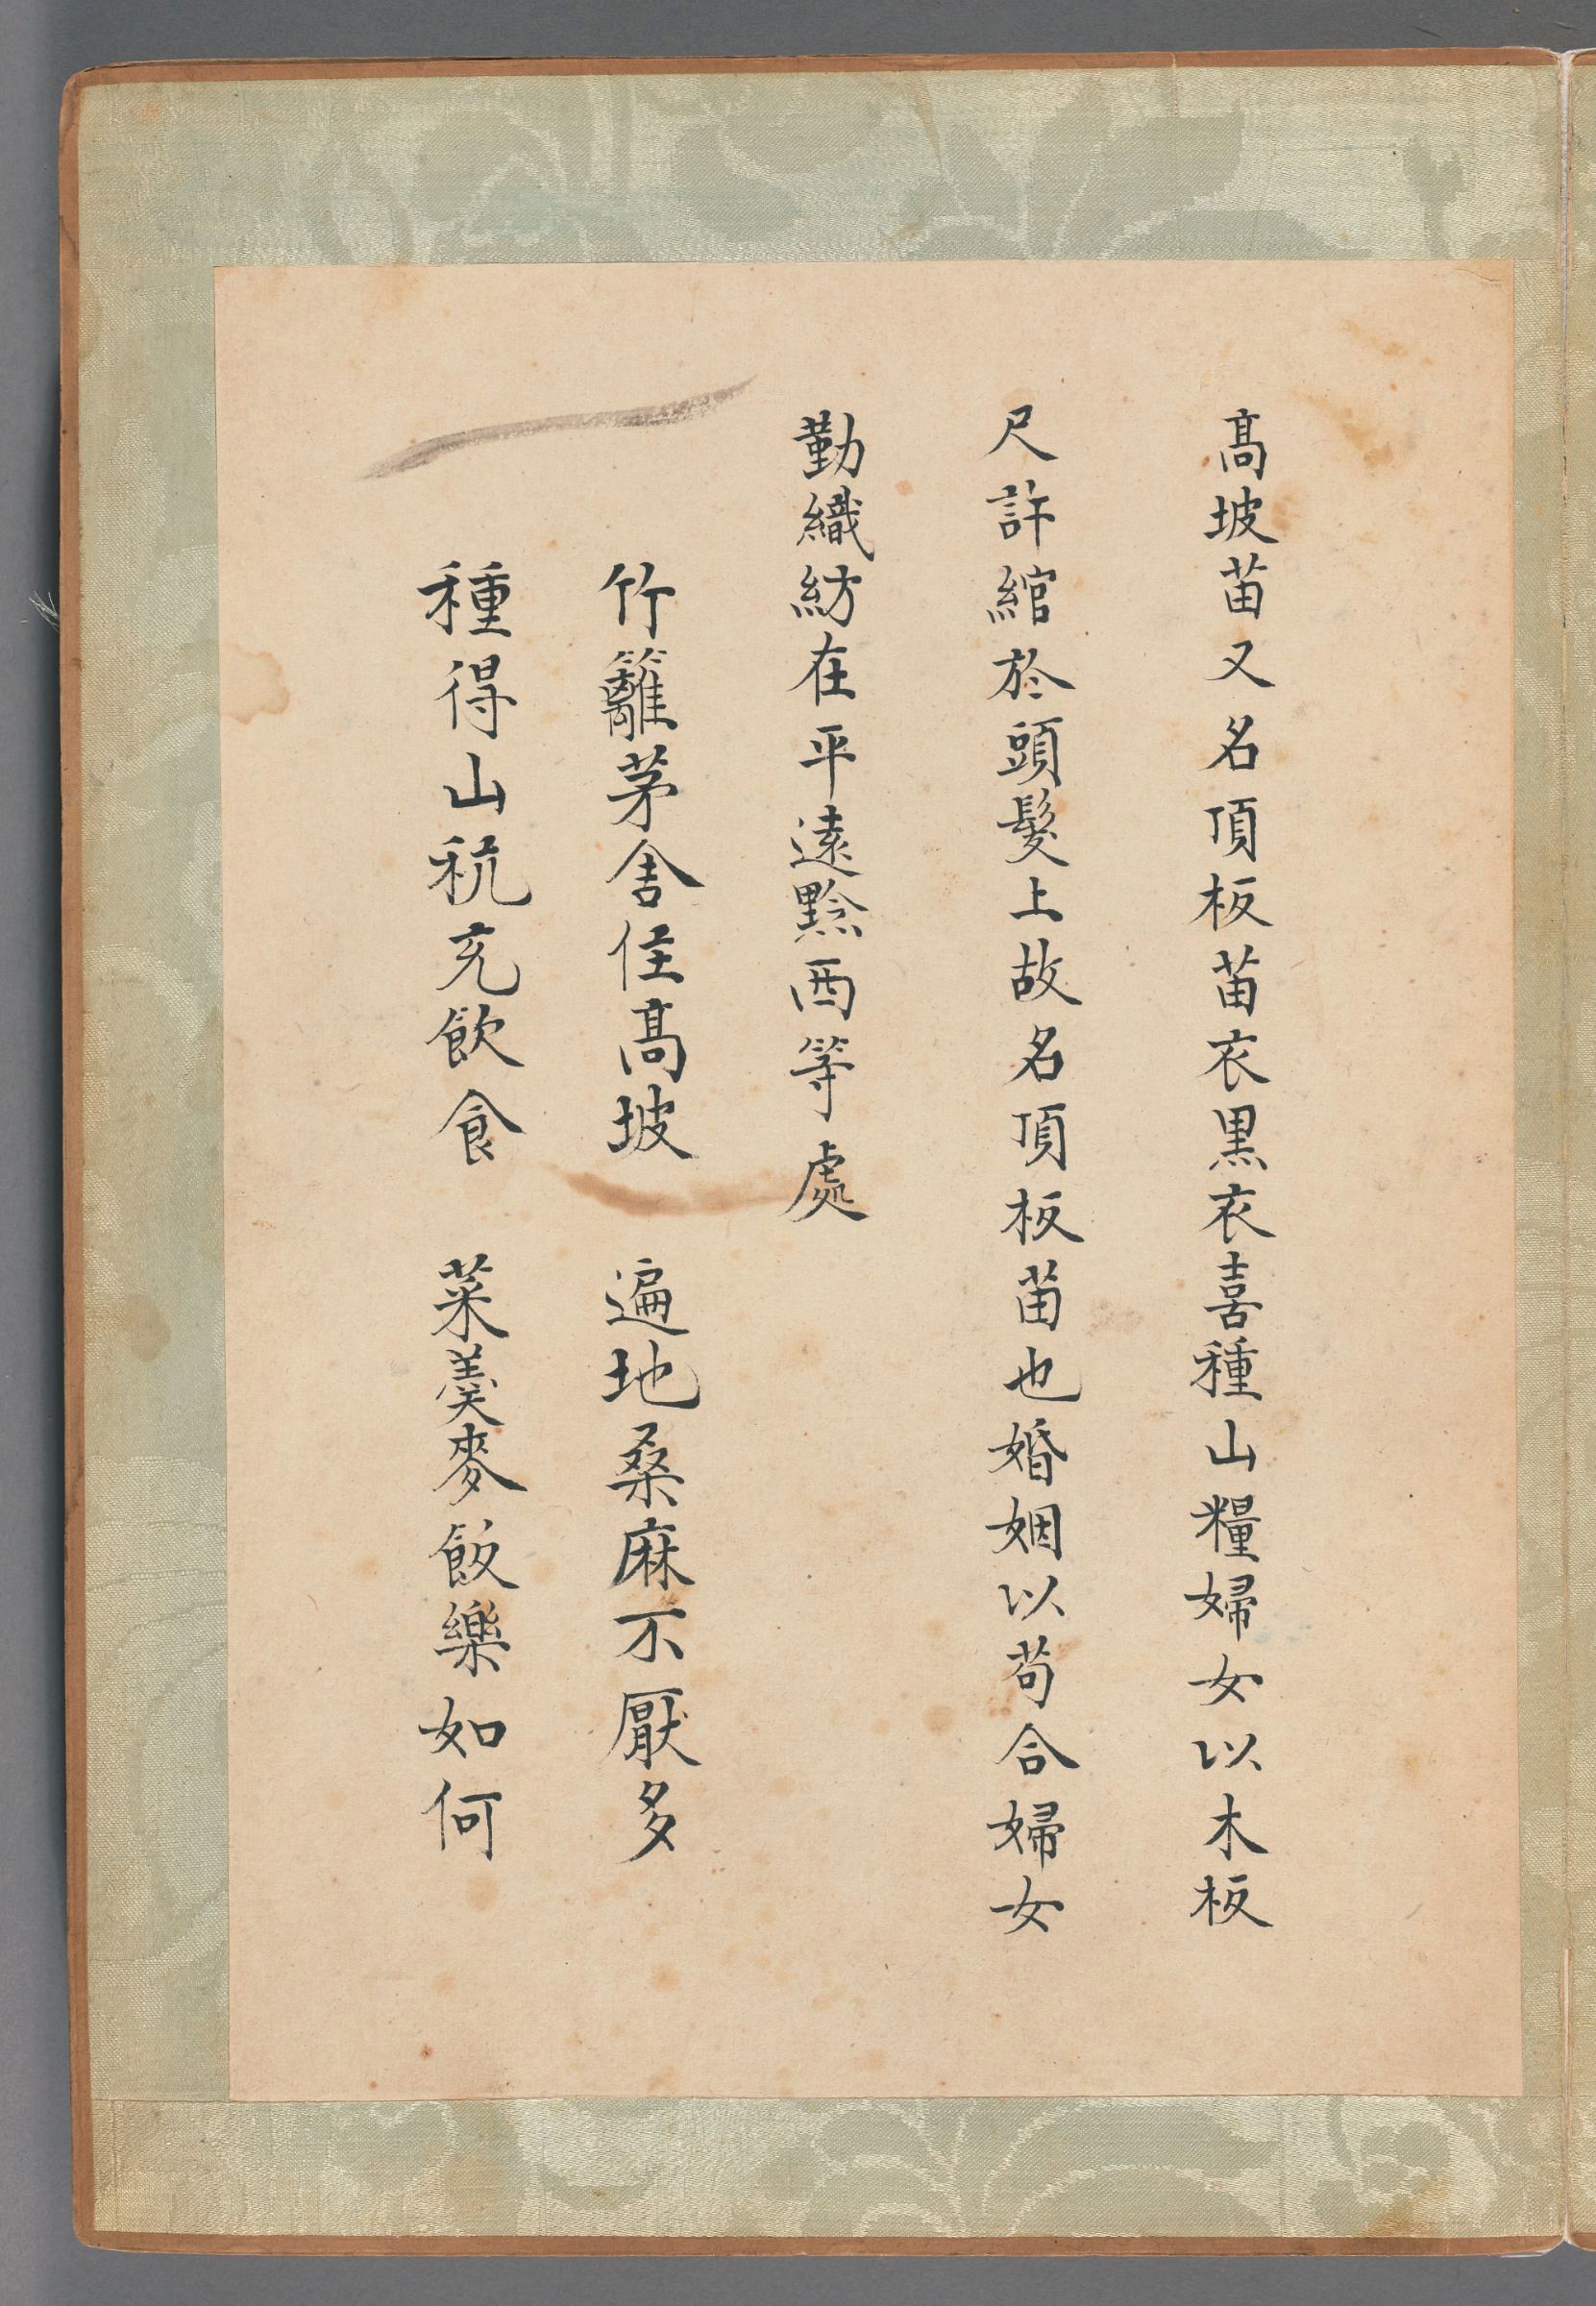 髙坡苗又名頂板苗衣黒衣喜種山糧婦女以木板
尺許綰於頭髮上故名頂板苗也婚姻以苟合婦女
勤織紡在平遠黔西等處
竹籬茅舍住髙坡　遍地桑麻不厭多
種得山秔充飲食　菜羮麥飯樂如何